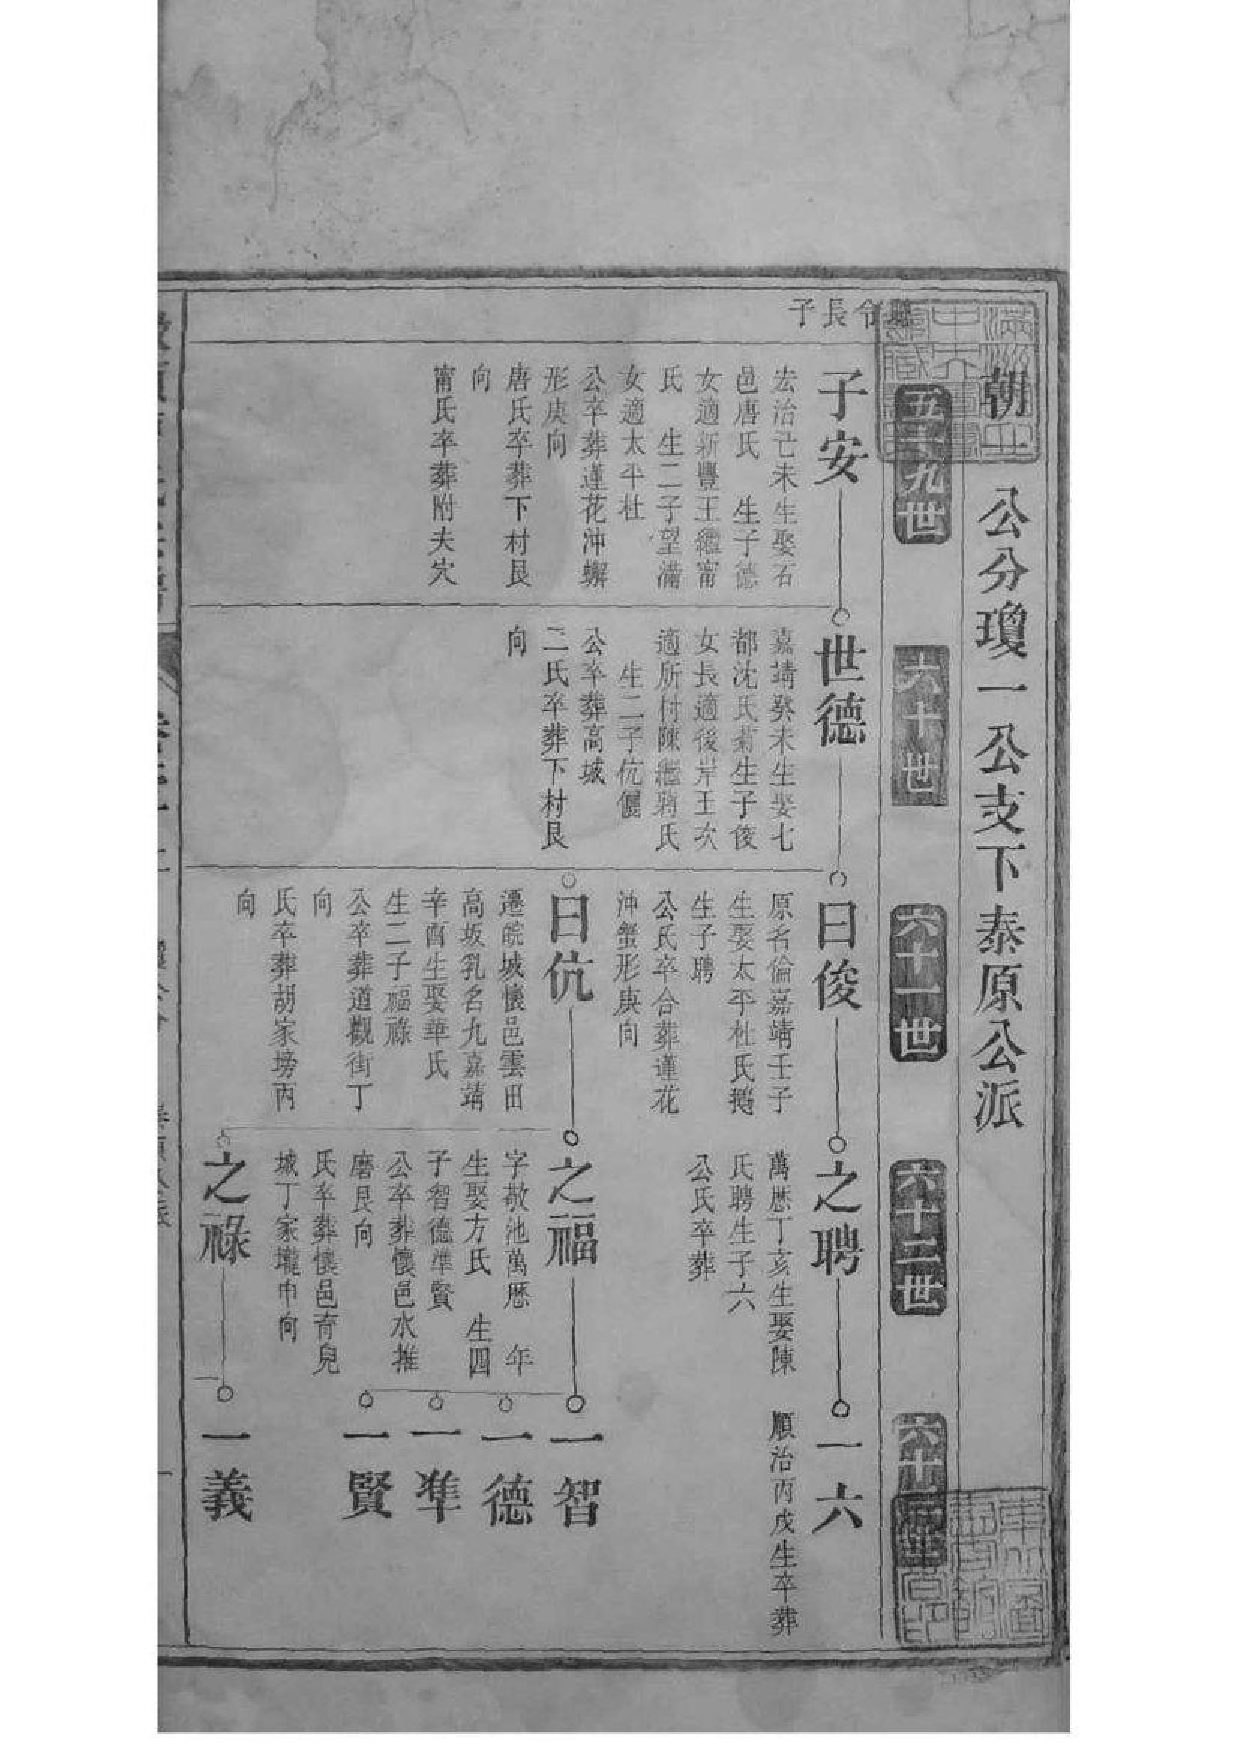 朝一公分瓊一公支下泰原公派
五十九世
六十世
六十一世
六十二世
六十三世
縣令長子
子安
宏治己未生娶石
邑唐氏 生子德
女適新豐王繼甯
氏 生二子望滿
女適太平杜
公卒葬蓮花沖蠏
形庚向
唐氏卒葬下村艮
向
甯氏卒葬附夫穴
世德
嘉靖癸未生娶七
都沈氏菊生子俊
女長適後岸王次
適所村陳繼蔣氏
生二子伉儷
公卒葬高城
二氏卒葬下村艮
向
日俊
原名倫嘉靖壬子
生娶太平杜氏鵝
生子聘
公氏卒合葬蓮花
沖蟹形庚向
日伉
遷皖城懷邑雲田
高坂乳名九嘉靖
辛酉生娶華氏
生二子福祿
公卒葬道觀街丁
向
氏卒葬胡家塝丙
向
之聘
萬厯丁亥生娶陳
氏聘生子六
公氏卒葬
之福
字敬池萬厯 年
生娶方氏 生四
子智德準賢
公卒葬懷邑水推
磨艮向
氏卒葬懷邑育兒
城丁家壠申向
之祿
一六
順治丙戌生卒葬
一智
一德
一準
一賢
一義